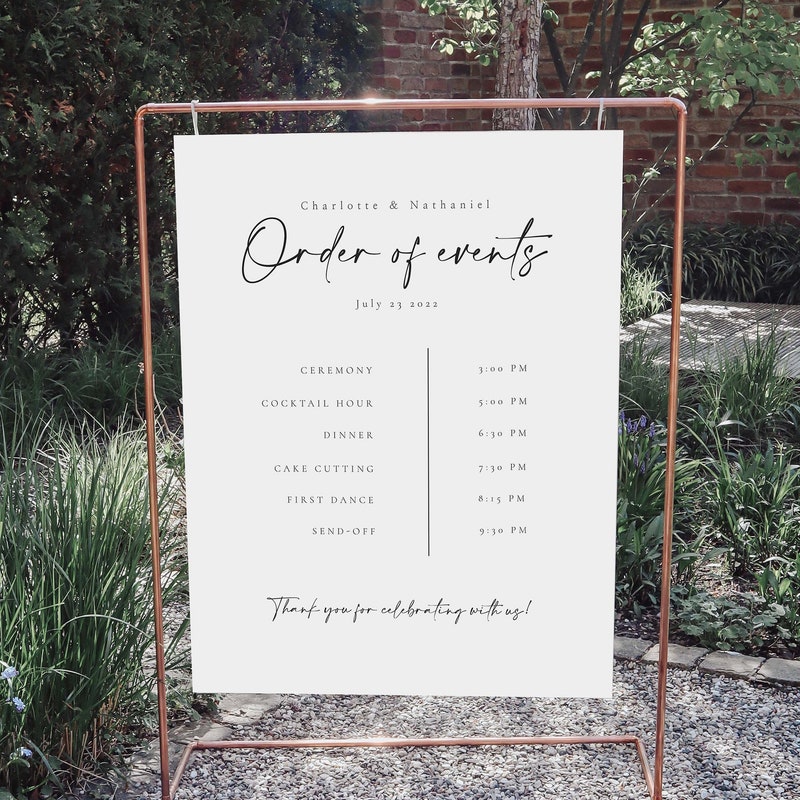 Charlotte & Nathaniel
Order of events
July 23 2022
CEREMONY 3:00 PM
COCKTAIL HOUR 5:00 PM
DINNER 6:30 PM
CAKE CUTTING 7:30 PM
FIRST DANCE 8:15 PM
SEND-OFF 9:30 PM
Thank you for celebrating with us!